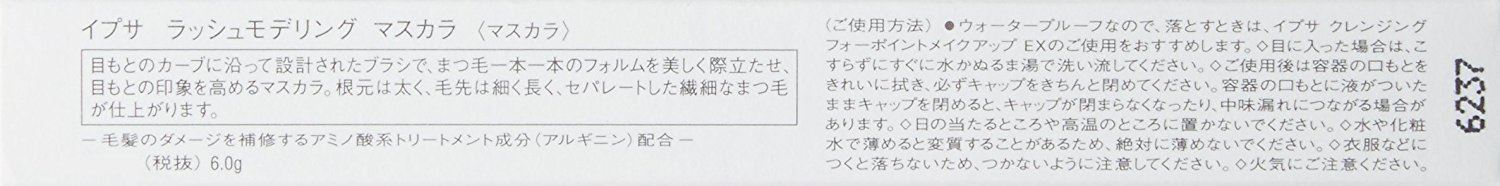 イプサ ラッシュモデリング マスカラ 〈マスカラ〉
目もとのカーブに沿って設計されたブラシで、まつ毛一本一本のフォルムを美しく際立たせ、
目もとの印象を高めるマスカラ。根元は太く、毛先は細く長く、セパレートした繊細なまつ毛
が仕上がります。
― 毛髪のダメージを補修するアミノ酸系トリートメント成分（アルギニン）配合 ―
（税抜） 6.0g
〈ご使用方法〉 ●ウォータープルーフなので、落とすときは、イプサ クレンジング
フォーポイントメイクアップ EXのご使用をおすすめします。◇目に入った場合は、こ
すらずにすぐに水かぬるま湯で洗い流してください。◇ご使用後は容器の口もとを
きれいに拭き、必ずキャップをきちんと閉めてください。容器の口もとに液がついた
ままキャップを閉めると、キャップが閉まらなくなったり、中味漏れにつながる場合が
あります。◇日の当たるところや高温のところに置かないでください。◇水や化粧
水で薄めると変質することがあるため、絶対に薄めないでください。◇衣服などに
つくと落ちないため、つかないように注意してください。◇火気にご注意ください。
6237